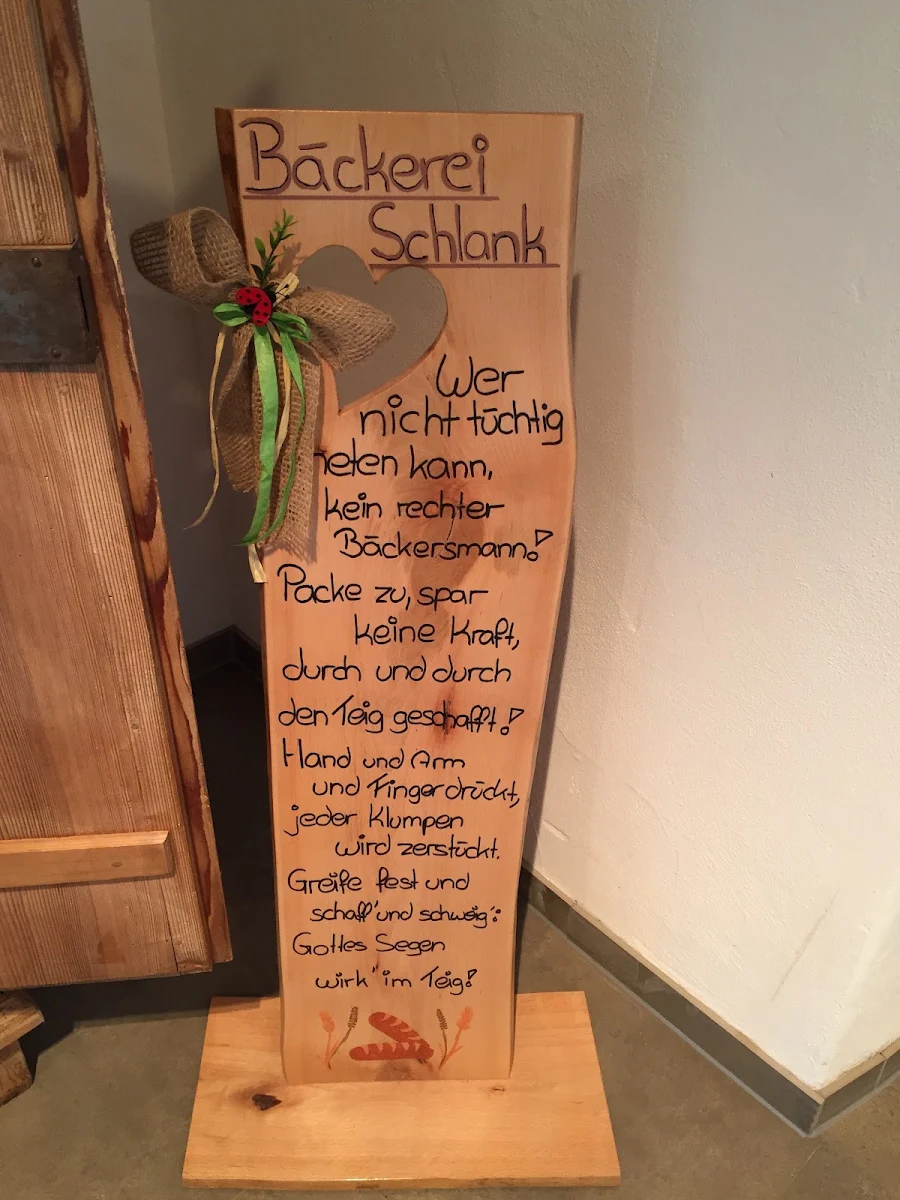 Bäckerei
Schlank
Wer
nicht tüchtig
neten kann,
kein rechter
Bäckersmann!
Packe zu, spar
keine Kraft,
durch und durch
den Teig geschafft!
Hand und Arm
und Finger drückt,
jeder Klumpen
wird zerstückt.
Greife fest und
schaff' und schweig':
Gottes Segen
wirk' im Teig!